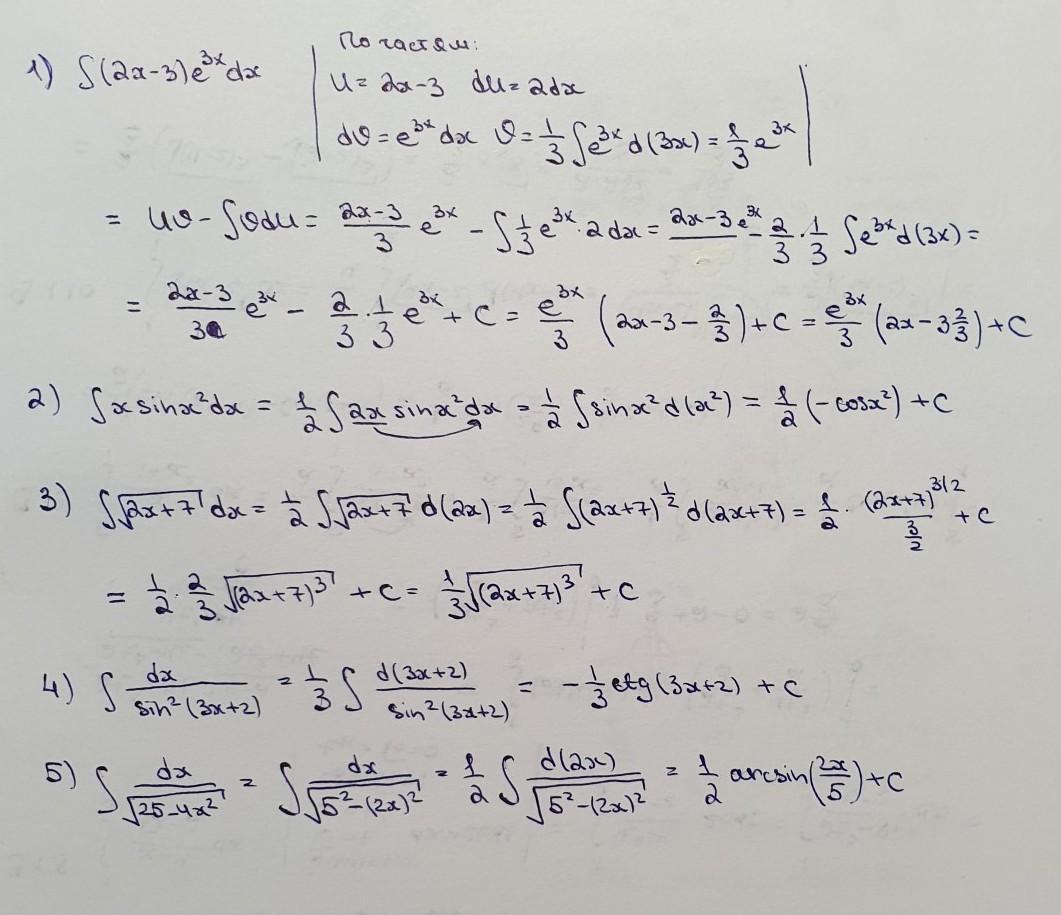 1) ∫(2x-3)e^{3x}dx
По частям:
u = 2x-3 du = 2dx
dv = e^{3x}dx v = \frac{1}{3}∫e^{3x}d(3x) = \frac{1}{3}e^{3x}
= uv - ∫vdu = \frac{2x-3}{3}e^{3x} - ∫\frac{1}{3}e^{3x}·2dx = \frac{2x-3 e^{3x}}{} - \frac{2}{3}·\frac{1}{3}∫e^{3x}d(3x) =
= \frac{2x-3}{3}e^{3x} - \frac{2}{3}·\frac{1}{3}e^{3x} + C = \frac{e^{3x}}{3}(2x-3-\frac{2}{3}) + C = \frac{e^{3x}}{3}(2x-3\frac{2}{3}) + C
2) ∫x sinx²dx = \frac{1}{2}∫2x sinx²dx = \frac{1}{2}∫sinx²d(x²) = \frac{1}{2}(-cosx²) + C
3) ∫√(2x+7)dx = \frac{1}{2}∫√(2x+7)d(2x) = \frac{1}{2}∫(2x+7)^{\frac{1}{2}}d(2x+7) = \frac{1}{2}·\frac{(2x+7)^{3/2}}{\frac{3}{2}} + C
= \frac{1}{2}·\frac{2}{3}√((2x+7)³) + C = \frac{1}{3}√((2x+7)³) + C
4) ∫\frac{dx}{sin²(3x+2)} = \frac{1}{3}∫\frac{d(3x+2)}{sin²(3x+2)} = -\frac{1}{3}ctg(3x+2) + C
5) ∫\frac{dx}{√(25-4x²)} = ∫\frac{dx}{√(5²-(2x)²)} = \frac{1}{2}∫\frac{d(2x)}{√(5²-(2x)²)} = \frac{1}{2}arcsin(\frac{2x}{5}) + C